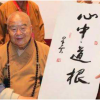 心中道根